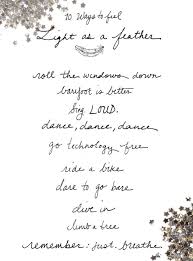 10 Ways to feel
Light as a feather
roll the windows down
barefoot is better
Sing LOUD.
dance, dance, dance
go technology free
ride a bike
dare to go bare
dive in
climb a tree
remember: just breathe.